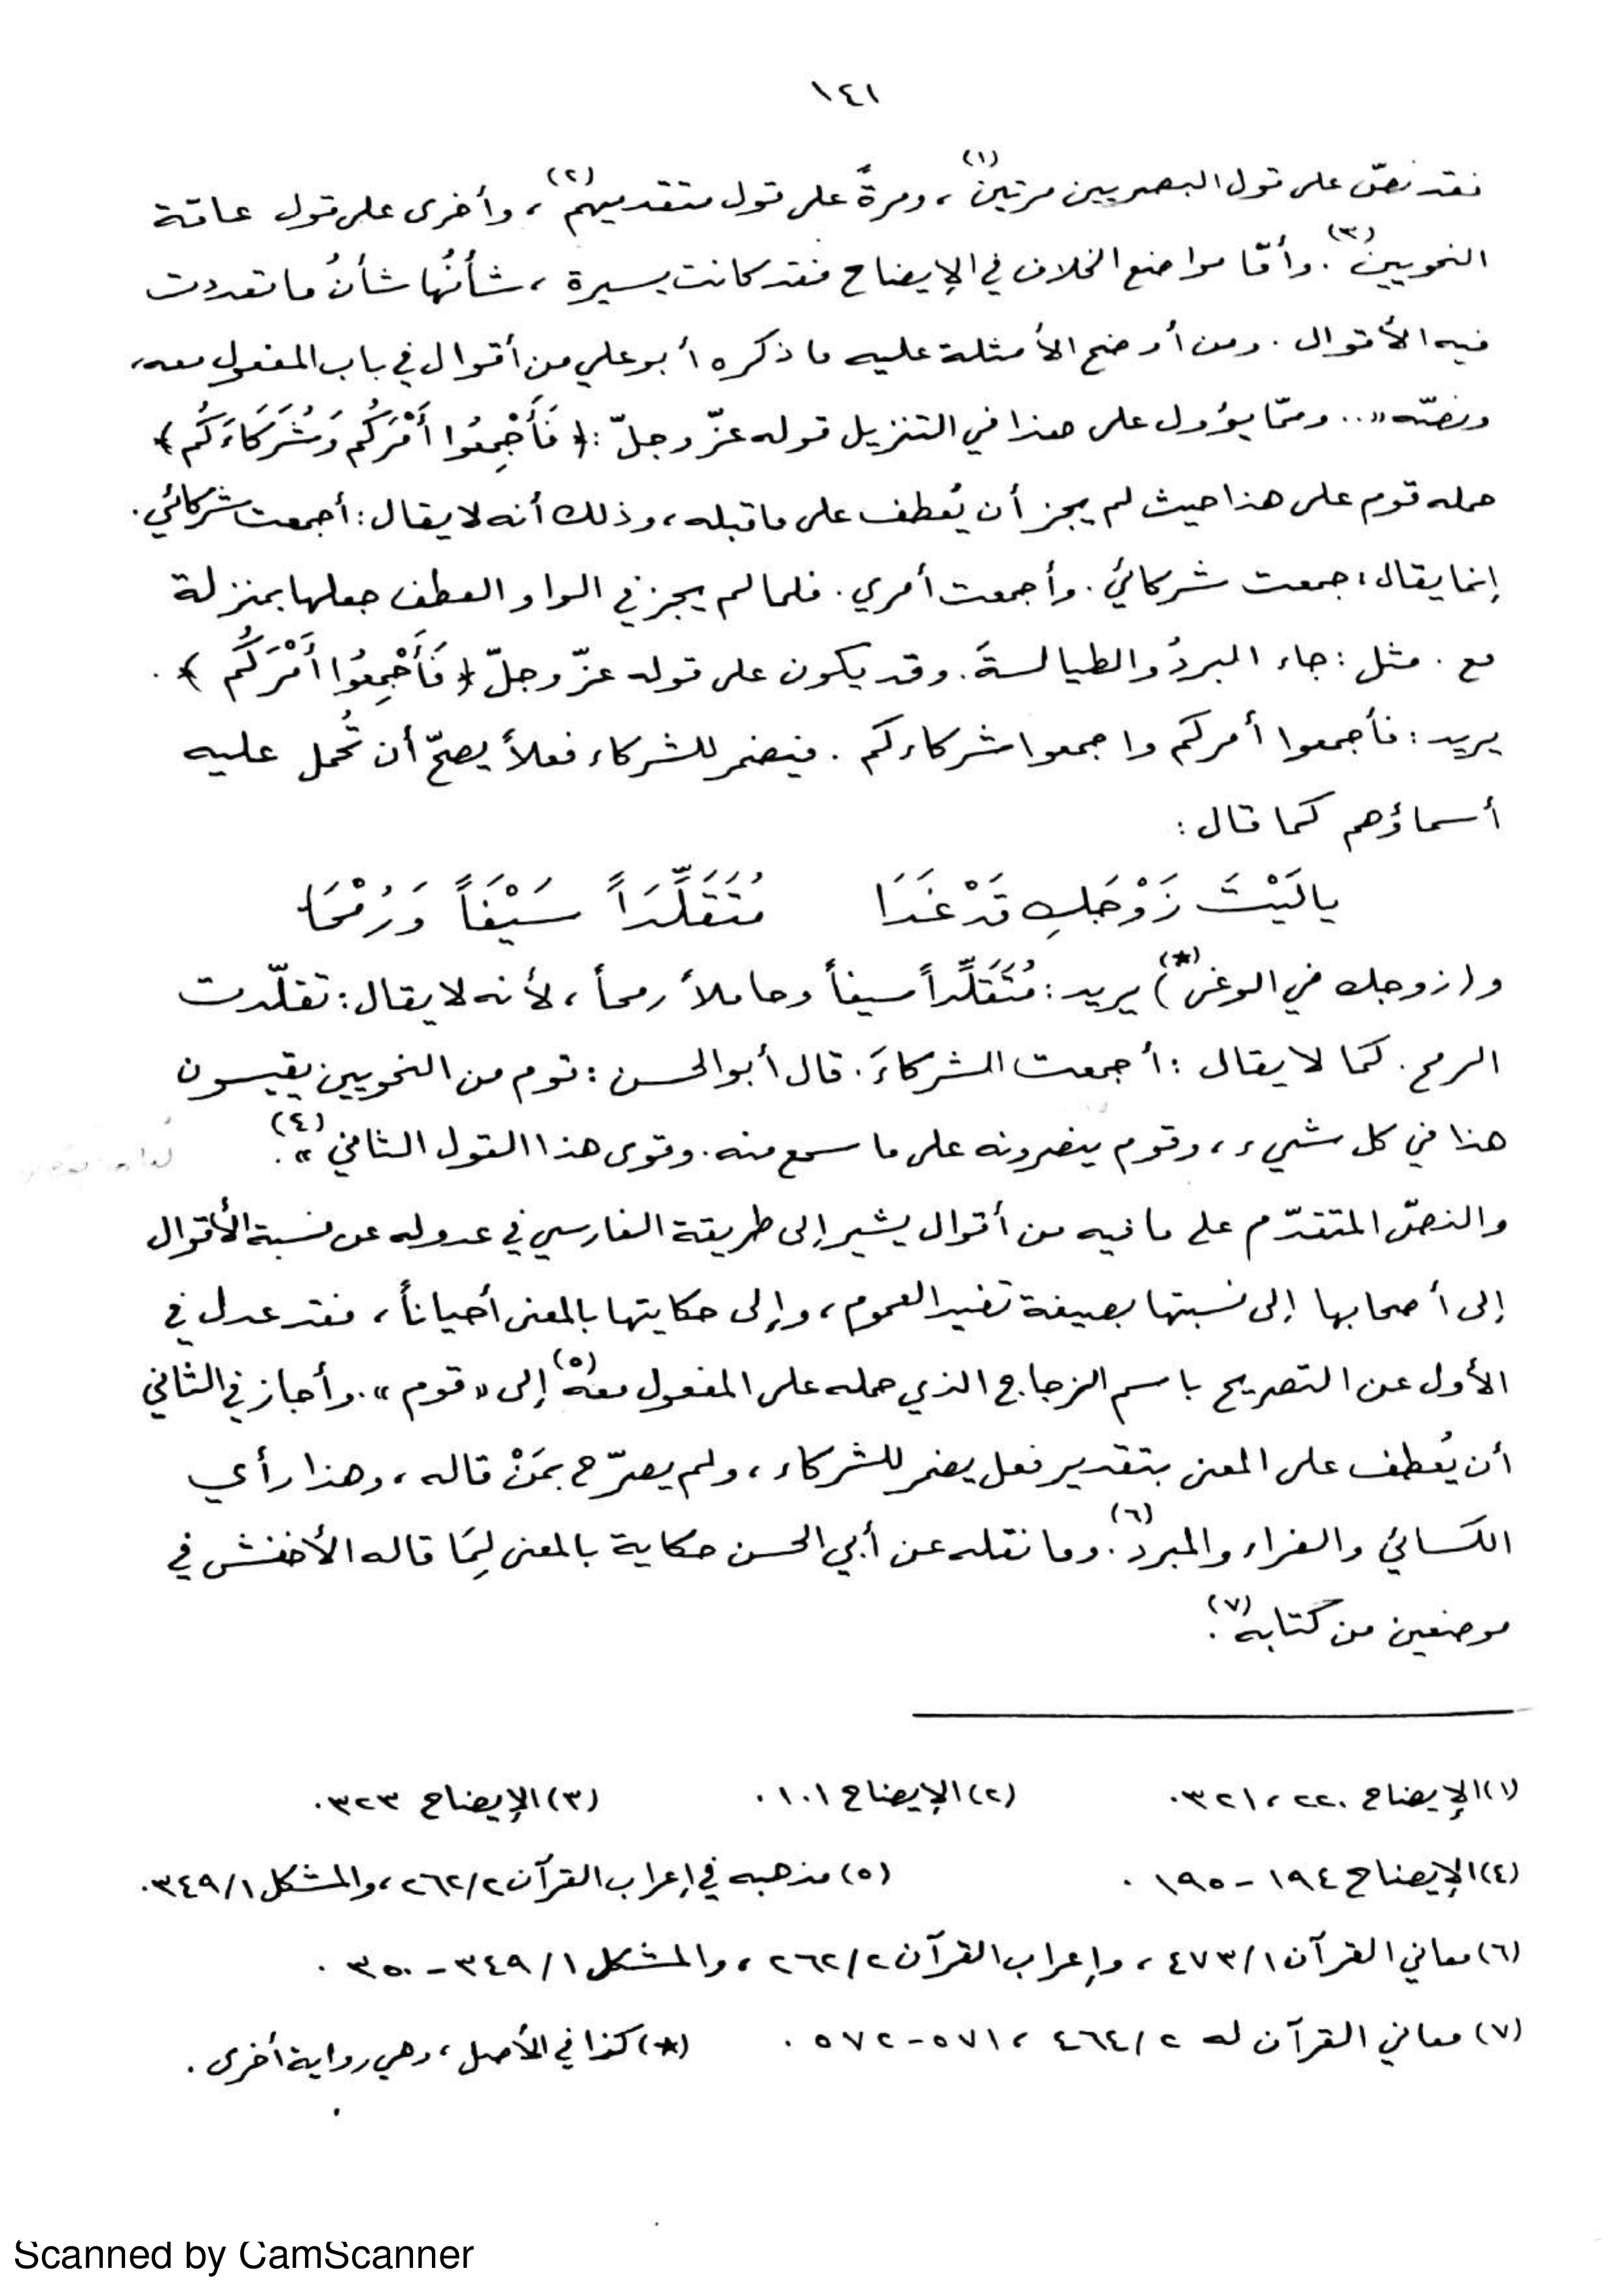 ١٤١
فقد نصّ على قول البصريين مرتين(١)، ومرةً على قول متقدميهم(٢)، وأخرى على قول عامّة
النحويين(٣). وأمّا مواضع الخلاف في الإيضاح فقد كانت يسيرة، شأنُها شأنُ ما تعددت
فيه الأقوال. ومن أوضح الأمثلة عليه ما ذكره أبو علي من أقوال في باب المفعول معه،
ونصّه «.. وممّا يؤول على هذا في التنزيل قوله عزّ وجلّ: ﴿فَأَجْمِعُوا أَمْرَكُم وَشُرَكَاءَكُم﴾
حمله قوم على هذا حيث لم يجز أن يُعطف على ما قبله، وذلك أنه لا يقال: أجمعت شركائي.
إنما يقال: جمعت شركائي. وأجمعت أمري. فلما لم يجز في الواو العطف جعلها بمنزلة
مع. مثل: جاء البردُ والطيالسةَ. وقد يكون على قوله عزّ وجلّ ﴿فَأَجْمِعُوا أَمْرَكُم﴾.
يريد: فأجمعوا أمركم واجمعوا شركاءكم. فيضمر للشركاء فعلاً يصحّ أن تُحمل عليه
أسماؤهم كما قال:
يا لَيْتَ زَوْجَكِ قَدْ غَدَا مُتَقَلِّدَاً سَيْفَاً وَرُمْحَا
و(زوجك في الوغى(*)) يريد: مُتَقَلِّداً سيفاً وحاملاً رمحاً، لأنه لا يقال: تقلّدت
الرمح. كما لا يقال: أجمعت الشركاءَ. قال أبو الحسن: قوم من النحويين يقيسون
هذا في كل شيء، وقوم يقصرونه على ما سمع منه. وقوى هذا القول الثاني»(٤).
والنصّ المتقدّم على ما فيه من أقوال يشير إلى طريقة الفارسي في عدوله عن نسبة الأقوال
إلى أصحابها إلى نسبتها بصيغة تفيد العموم، وإلى حكايتها بالمعنى أحياناً، فقد عدل في
الأول عن التصريح باسم الزجاج الذي حمله على المفعول معه(٥) إلى «قوم». وأجاز في الثاني
أن يُعطف على المعنى بتقدير فعل يضمر للشركاء، ولم يصرّح بمَنْ قاله، وهذا رأي
الكسائي والفراء والمبرد(٦). وما نقله عن أبي الحسن حكاية بالمعنى لِمَا قاله الأخفش في
موضعين من كتابه(٧).
(١) الإيضاح ٢٢٠، ٣٢١. (٢) الإيضاح ١٠١. (٣) الإيضاح ٣٢٣.
(٤) الإيضاح ١٩٤ - ١٩٥. (٥) مذهبه في إعراب القرآن ٢/٢٦٢، والمشكل ١/٣٤٩.
(٦) معاني القرآن ١/٤٧٣، وإعراب القرآن ٢/٢٦٢، والمشكل ١/٣٤٩ - ٣٥٠.
(٧) معاني القرآن له ٢/٤٦٤، ٥٧١-٥٧٢. (*) كذا في الأصل، وهي رواية أخرى.
Scanned by CamScanner